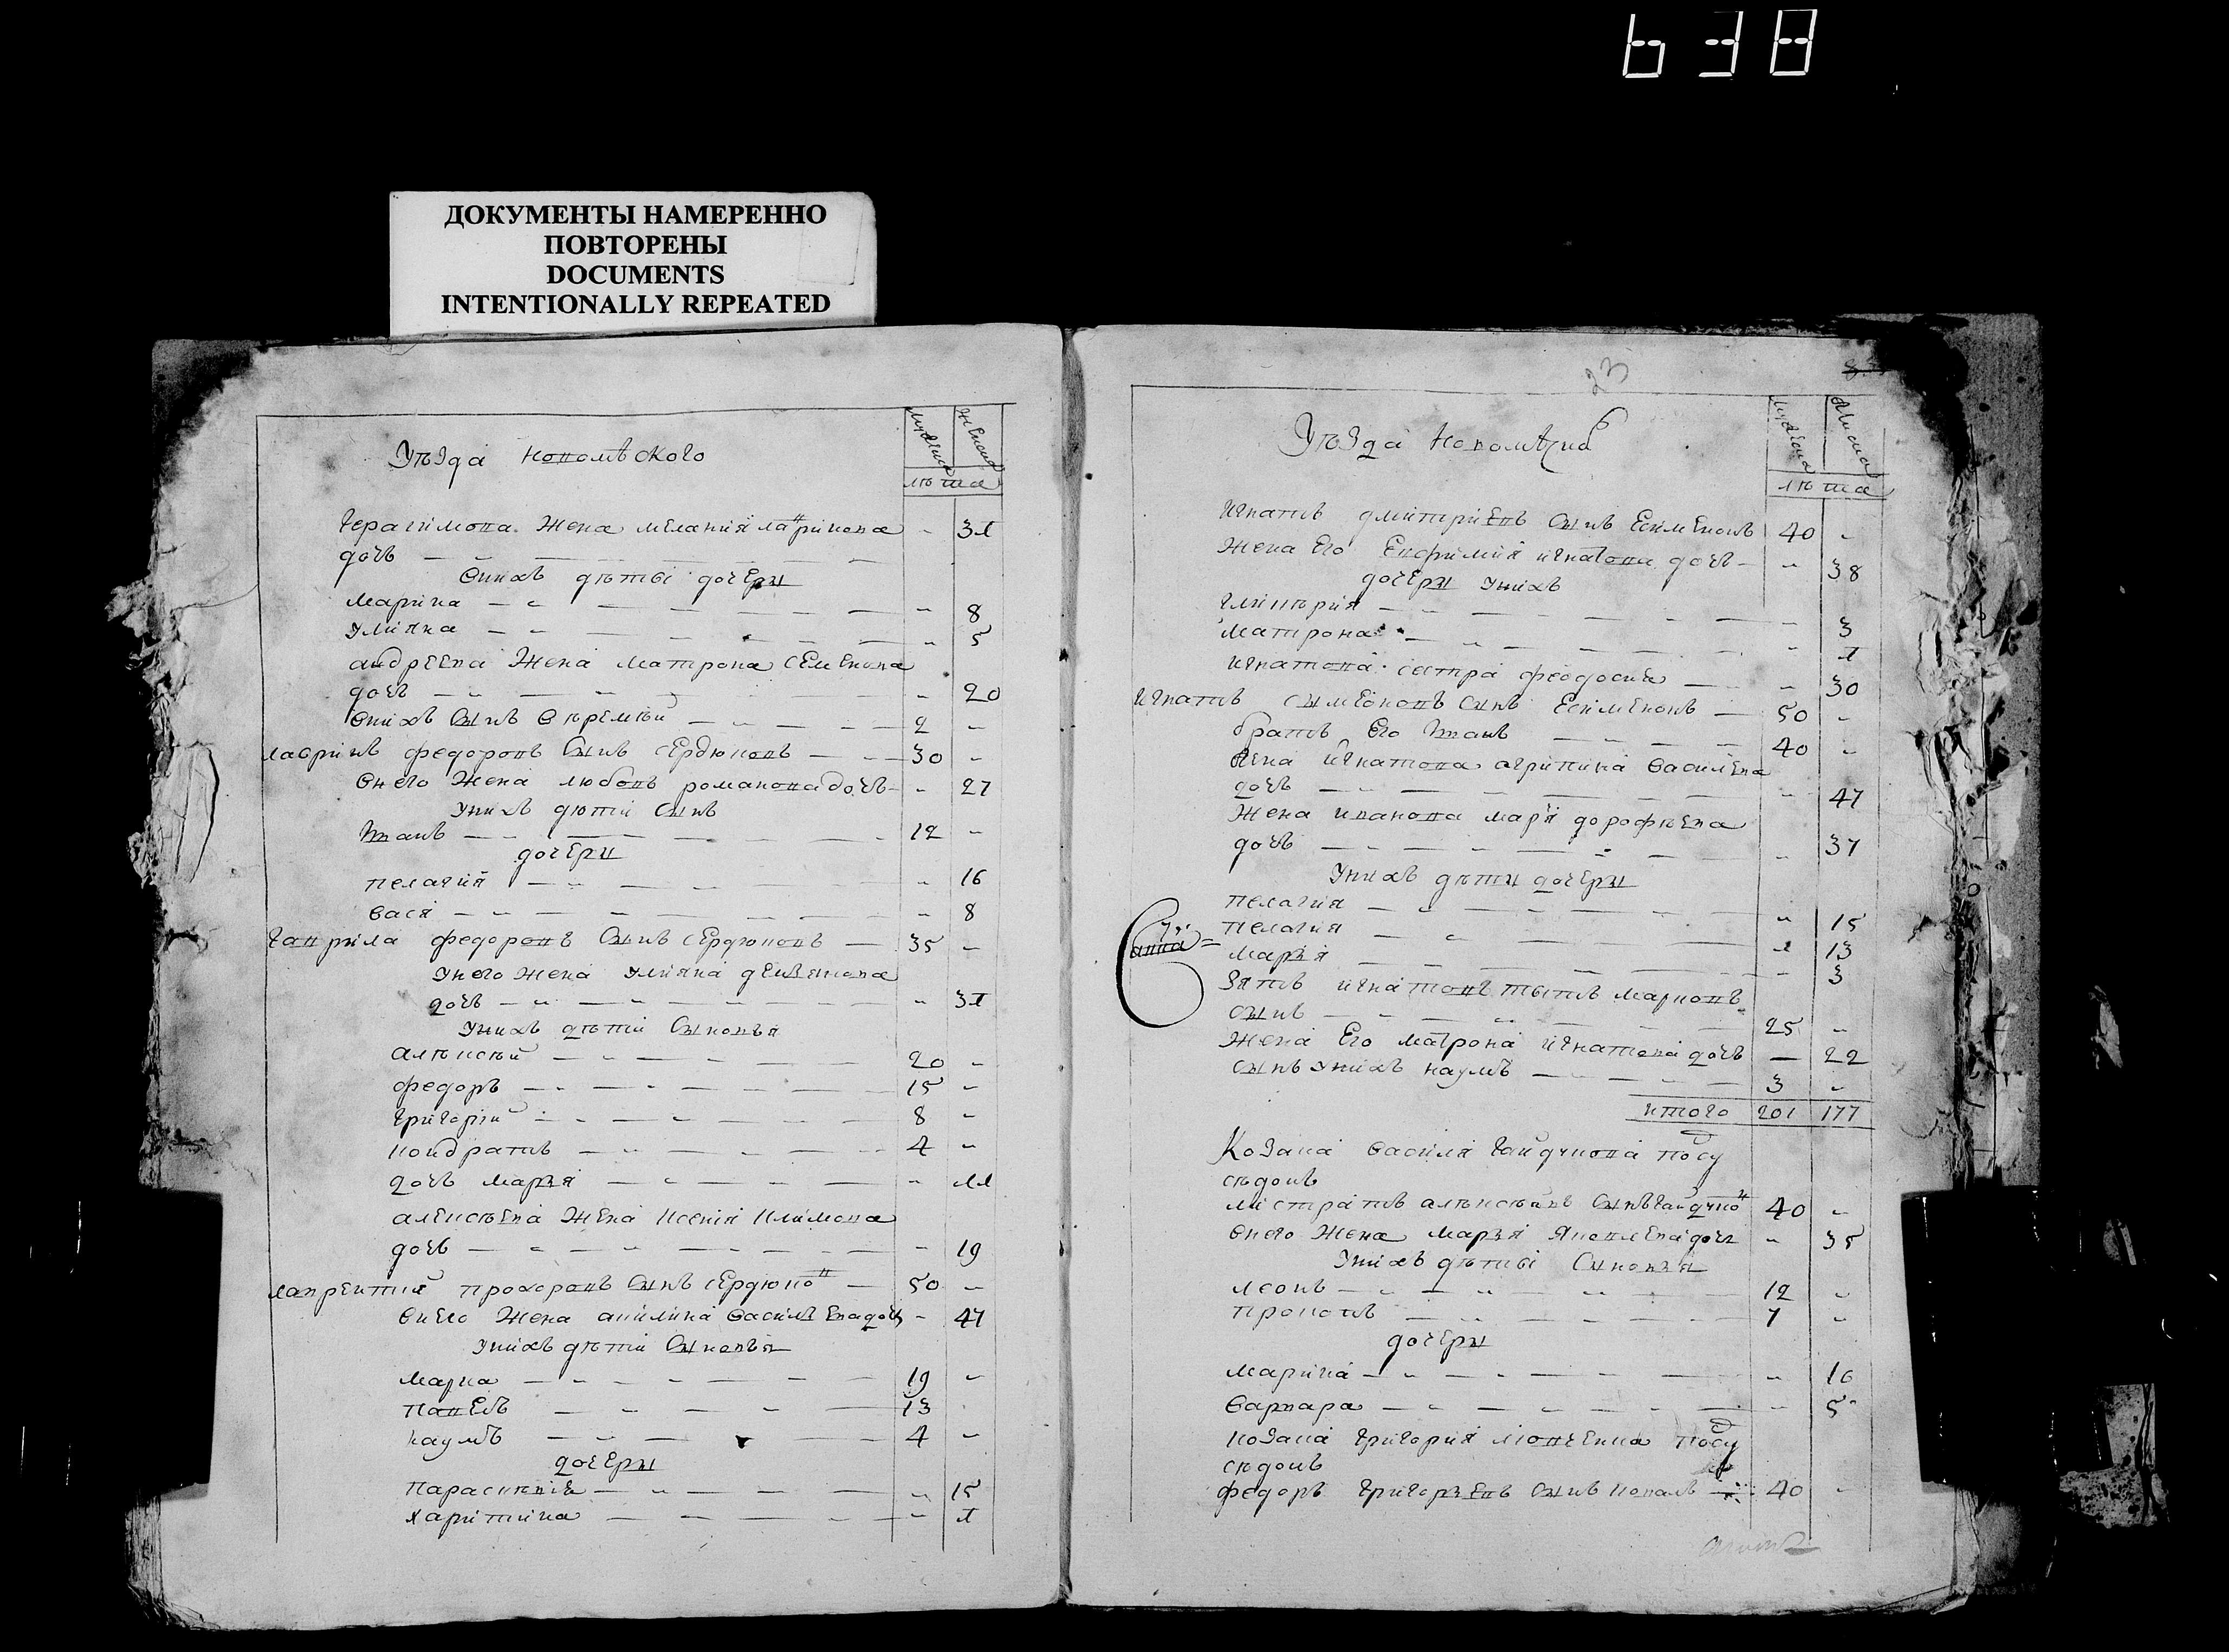 638
ДОКУМЕНТЫ НАМЕРЕННО
ПОВТОРЕНЫ
DOCUMENTS
INTENTIONALLY REPEATED
мужеска женска
Уѣзда
лѣта
Герасимова жена мелания лавринова - 31
дочь
Внихъ дѣтѣи дочеры
марина - 8
Улияна - 5
андрѣева жена матрона семенова
дочь - 20
Внихъ сынъ Еѳремъй 2 -
лавринъ федоровъ сынъ сердюковъ 30 -
Внего жена любовь романова дочь - 27
Унихъ дѣти сынъ
иванъ 12 -
дочеры
пелагия - 16
Вася - 8
Гаврила федоровъ сынъ сердюковъ 35 -
Унего жена Улияна
дочь - 31
Унихъ дѣти сыновья
алѣксѣй 20 -
федоръ 15 -
григорий 8 -
кондратъ 4 -
дочь марья - 11
алексѣева жена ксения климова
дочь - 19
лаврентий прохоровъ сынъ сердюков 50 -
Внего жена акилина Василева дочь - 47
Унихъ дѣти сыновья
марка 19 -
павелъ 13
наумъ 4 -
дочеры
параскѣвия - 15
харитина - 1
23
Уѣзда
мужеска женска
лѣта
Игнатъ дмитриевъ сынъ Есименокъ 40 -
жена его Евфимия игнатова дочь - 38
дочеры Унихъ
гликѣрия - 3
матрона - 1
игнатова сестра феодосия - 30
Игнатъ сымеоновъ сынъ Есименокъ 50 -
братъ его иванъ 40 -
жена игнатова агрипина Василева
дочь - 47
жена иванова маря дорофѣева
дочь - 37
Унихъ дѣти дочеры
пелагия - 15
пелагия - 13
анна =
марья - 3
зять игнатовъ титъ марковъ
сынъ 25 -
жена его матрона игнатова дочь - 22
сынъ Унихъ наумъ 3 -
итого 201 177
Козака Василя Гайдукова подсу
сѣдокъ
мистратъ алѣксѣивъ сынъ гайдуков 40 -
Внего жена марья Яковлева дочь - 35
Унихъ дѣтѣи сыновья
леонъ 12 -
прокопъ 7 -
дочеры
марина - 16
варвара - 5
козака григория подсу
сѣдокъ
федоръ григорьевъ сынъ коваль 40 -